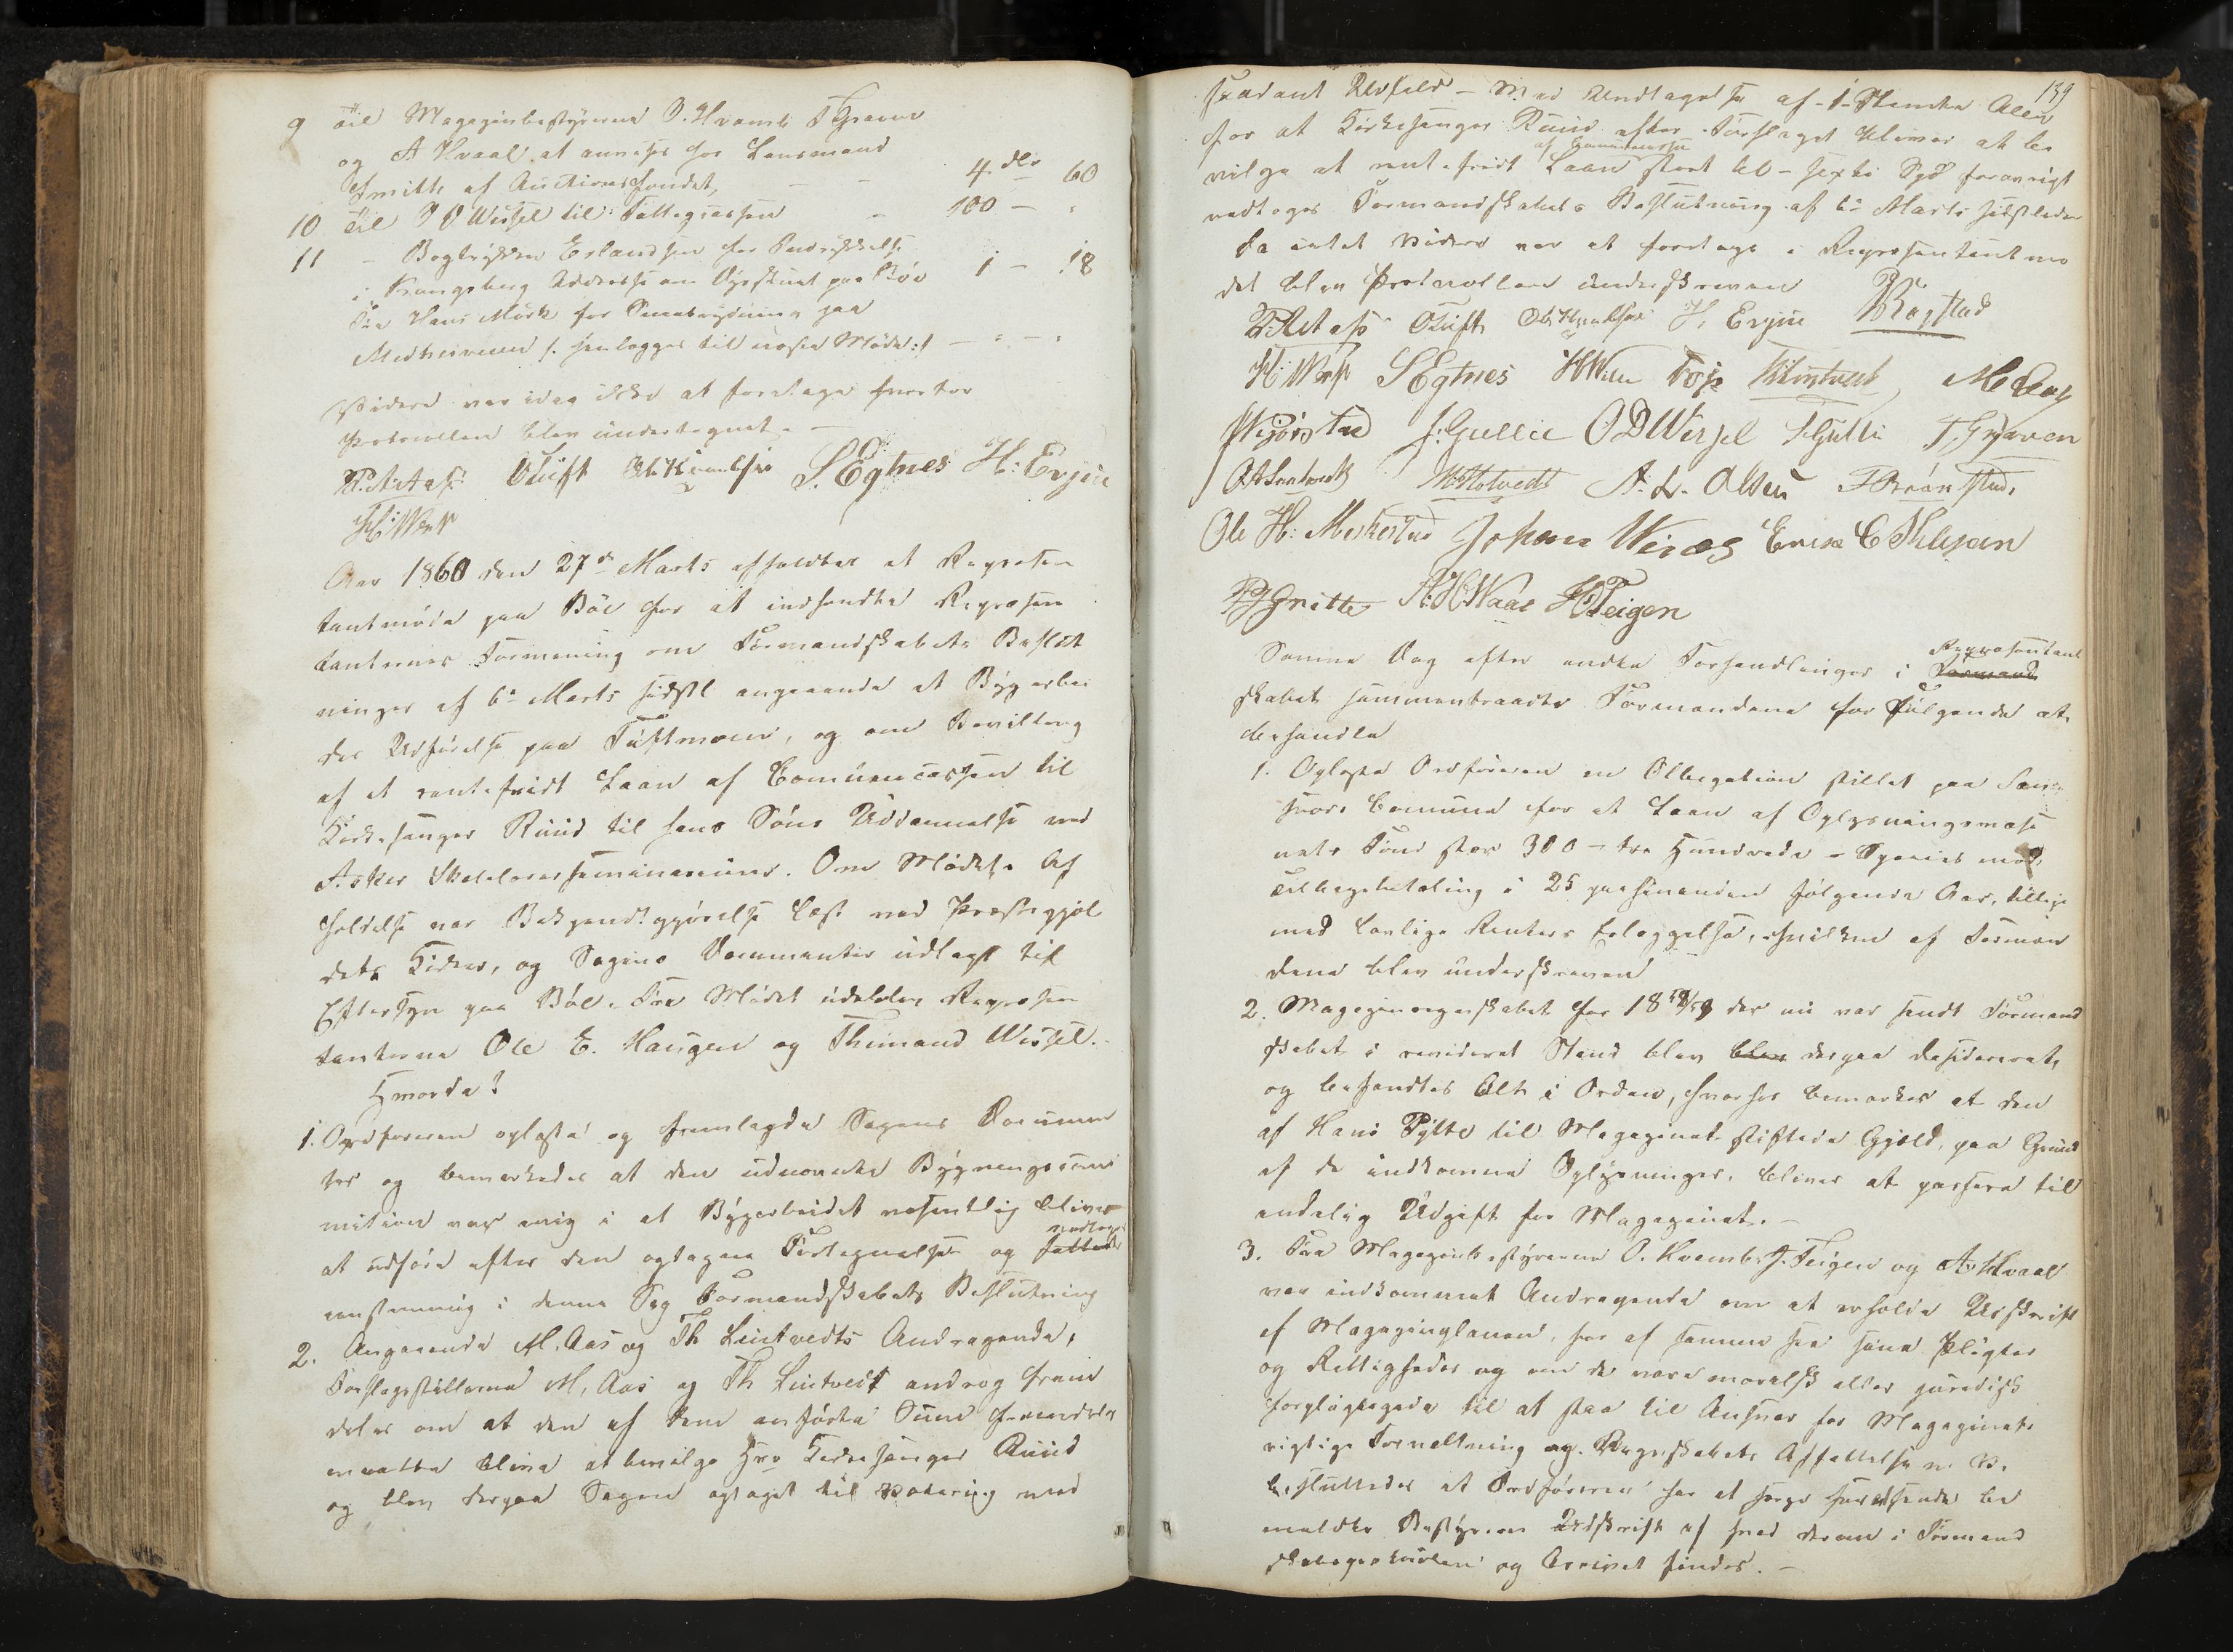 9 til Magazinbestyrerne O. Kvamb T Graver
og A Hvaal at anvises hos Lensmand
Smitth af Auctionsfondet, - - 4 dlr 60
10 til P O Wessel til Fattigcassen - 100 - "
11 - Bogtrykker Erlandsen for Indrykkelse
i Kongsberg Addresse om Dyrskuet paa Böe 1 - 18
Fra Hans Mörk for
/: henlægges til næste Möde :/ - " - "
Videre var idag ikke at foretage hvorfor
Protocollen blev undertegnet. -
OTuft S. Egtnes H: Evju
H: Werp
Aar 1860 den 27de Marts afholdtes et Repræsen
tantmöde paa Böe for at indhendte Repræsen
tanternes Formening om Formandskabets Beslut
ninger af 6te Marts sidstl angaaende et Bygarbei
des Udförelse paa Tuftmoen, og om Bevilling
af et rentefridt Laan af Communecassen til
Kirkesanger Ruud til hans Söns Uddannelse ved
Asker Skolelærerseminarium. Om Mödets Af
holdelse var Bekjendtgjörelse læst ved Præstegjel
dets Kirker, og Sagens Documenter udlagt til
Eftersyn paa Böe. Fra Mödet udeblev Repræsen
tanterne Ole E. Haugen og Thimand Wessel. -
Hvorda!
1. Ordföreren oplæste og fremlagde Sagens Documen
ter og bemærkedes at den udnævnte Bygningscom
mition var enig i at Bygarbeidet væsentlig bliver
at udföre efter den optagne Fortegnelse og vedtoges
enstemmig i denne Sag Formandskabets Beslutning
2. Angaaende M. Aas og Th Lintvedts Andragende,
Forslagsstillerne M. Aas og Th Lintvedt androg frem
deles om at den af dem anförte Sum
maatte blive at bevilge Hrr Kirkesanger Ruud
og blev derpaa Sagen optaget til Votering med
139
saadant Udfald - Med Undtagelse af -1- Stemte Alle
for at Kirkesanger Ruud efter Forslaget bliver at be
af Communecassen
vilge et rentefridt Laan stort 60 - sexti Spd forövrigt
vedtoges Formandskabets Beslutning af 6te Marts sidstleden
Da intet videre var at foretage i Repræsentantmö
det blev Protocollen underskreven
OTuft H. Evju Rogstad
H: Werp SEgtnes Lintvedt MAas
J: Gullie O D Wessel T. Graven
A. L. Olsen
Ole H: Johan Erik C
Gritte A: H. Waal H Teigen
Samme Dag efter endte Forhandlinger i Repræsentant
skabet sammentraadte Formændene for Fölgende at
behandle
1. Oplæste Ordföreren en Obligation stillet paa Sans
hvær Comune for et Laan af Oplysningsvæse
nets Fond stor 300 - tre Hundrede - Species mod
Tilbagebetaling i 25 paahinanden fölgende Aar, tillige
med lovlige Renters Erlæggelse, hvilken af Forman
dene blev underskreven
2. Magazinregnskabet for 1858/59 der nu var sendt Formand
skabet i revideret Stand blev blev derpaa desideerert,
og befandtes Alt i Orden, hvorhos bemærkes at den
af Hans Pytte til Magazinet stiftede Gjæld, paa Grund
af de indkomne Oplysninger, bliver at passere til
endelig Udgift for Magazinet. -
3. Fra Magazinbestyrerne O. Kvemb, J. Teigen og A. Hvaal
var indkommet Andragende om at erholde Udskrift
af Magazinplanen, for af samme see sine Pligter
og Rettigheder og om de være moralsk eller juridisk
forpligtegede til at staa til Ansvar for Magazinets
rigtige Forvaltning og Regnskabets Affattelse m. V.
besluttedes at Ordföreren har at sörge
meldte Bestyrere Udskrift af hvad derom i Formand
skabsprotocolen og Arcivet findes. -